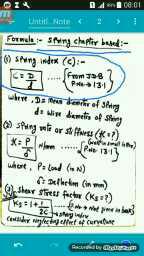 08:01
2
Formula:- Spring chapter based:-
(1) Spring index (C):-
C = D/d ..... (From JDB P.No. 131)
where, D = mean diameter of spring
d = wire diameter of spring
(2) Spring rate or stiffness (K = ?)
K = P/δ N/mm ..... P.No: 131
where, P = Load (in N)
δ = Deflection (in mm)
(3) shear stress factor (Ks = ?)
Ks = 1 + 1/2C
spring index
consider neglecting effect of curvature